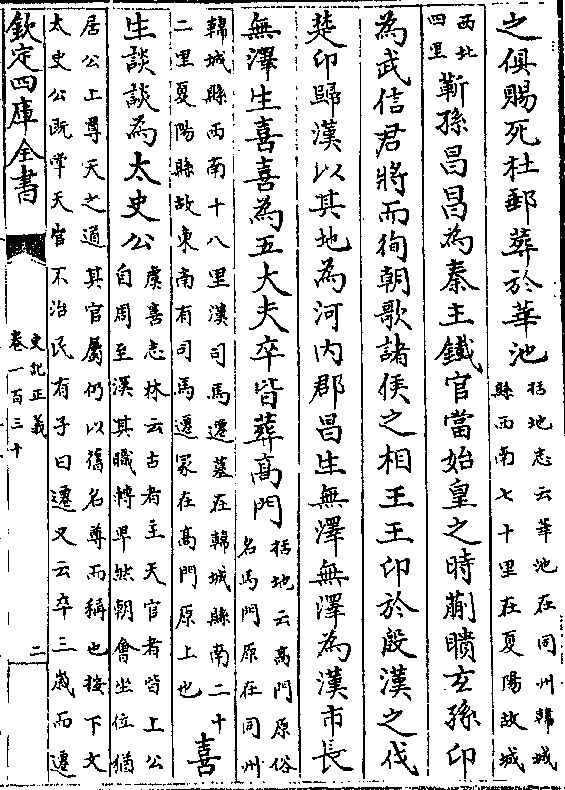 之俱賜死杜郵葬於華池括地志云華池在同州韓城
縣西南七十里在夏陽故城
西北
四里
靳孫昌昌為秦主鐵官當始皇之時蒯聵玄孫印
為武信君將而徇朝歌諸侯之相王王印於殷漢之伐
楚印歸漢以其地為河内郡昌生無澤無澤為漢市長
無澤生喜喜為五大夫卒皆葬髙門括地云髙門原俗
名馬門原在同州
韓城縣西南十八里漢司馬遷墓在韓城縣南二十
二里夏陽縣故東南有司馬遷冢在髙門原上也
喜
生談談為太史公虞喜志林云古者主天官者皆上公
自周至漢其職轉卑然朝會坐位猶
居公上尊天之道其官屬仍以舊名尊而稱也接下文
太史公既掌天官不治民有子曰遷又云卒三歲而遷
欽定四庫全書
史記正義
卷一百三十
二